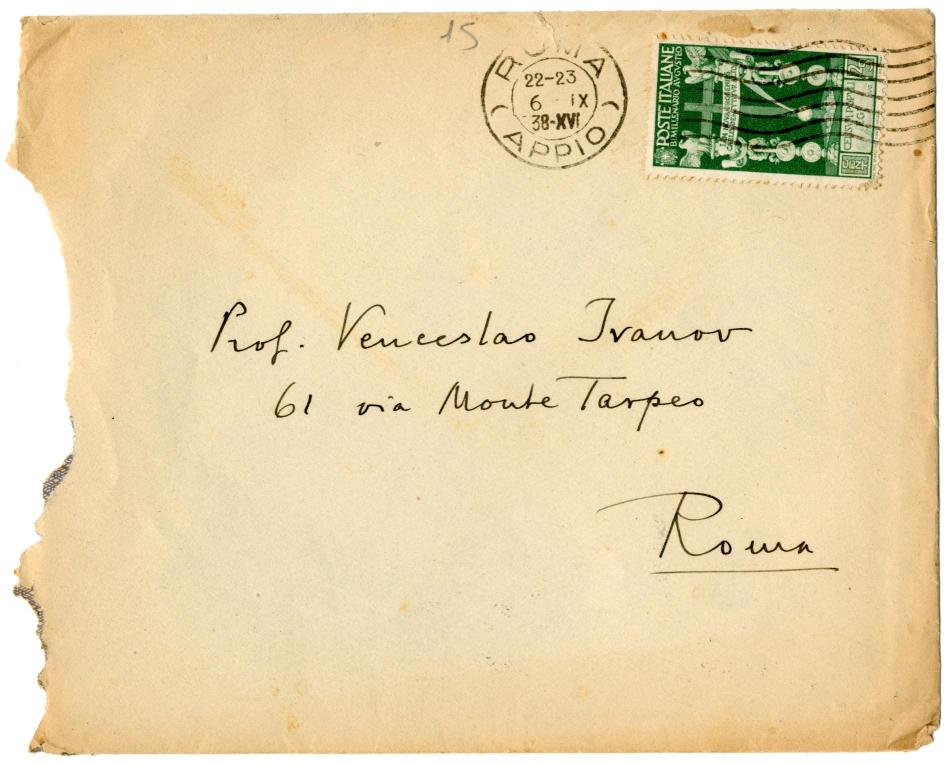 15
ROMA
22-23
6 - IX
38-XVI
( APPIO )
POSTE ITALIANE
BIMILLENARIO AVGVSTEO
Prof. Venceslao Ivanov
61 via Monte Tarpeo
Roma